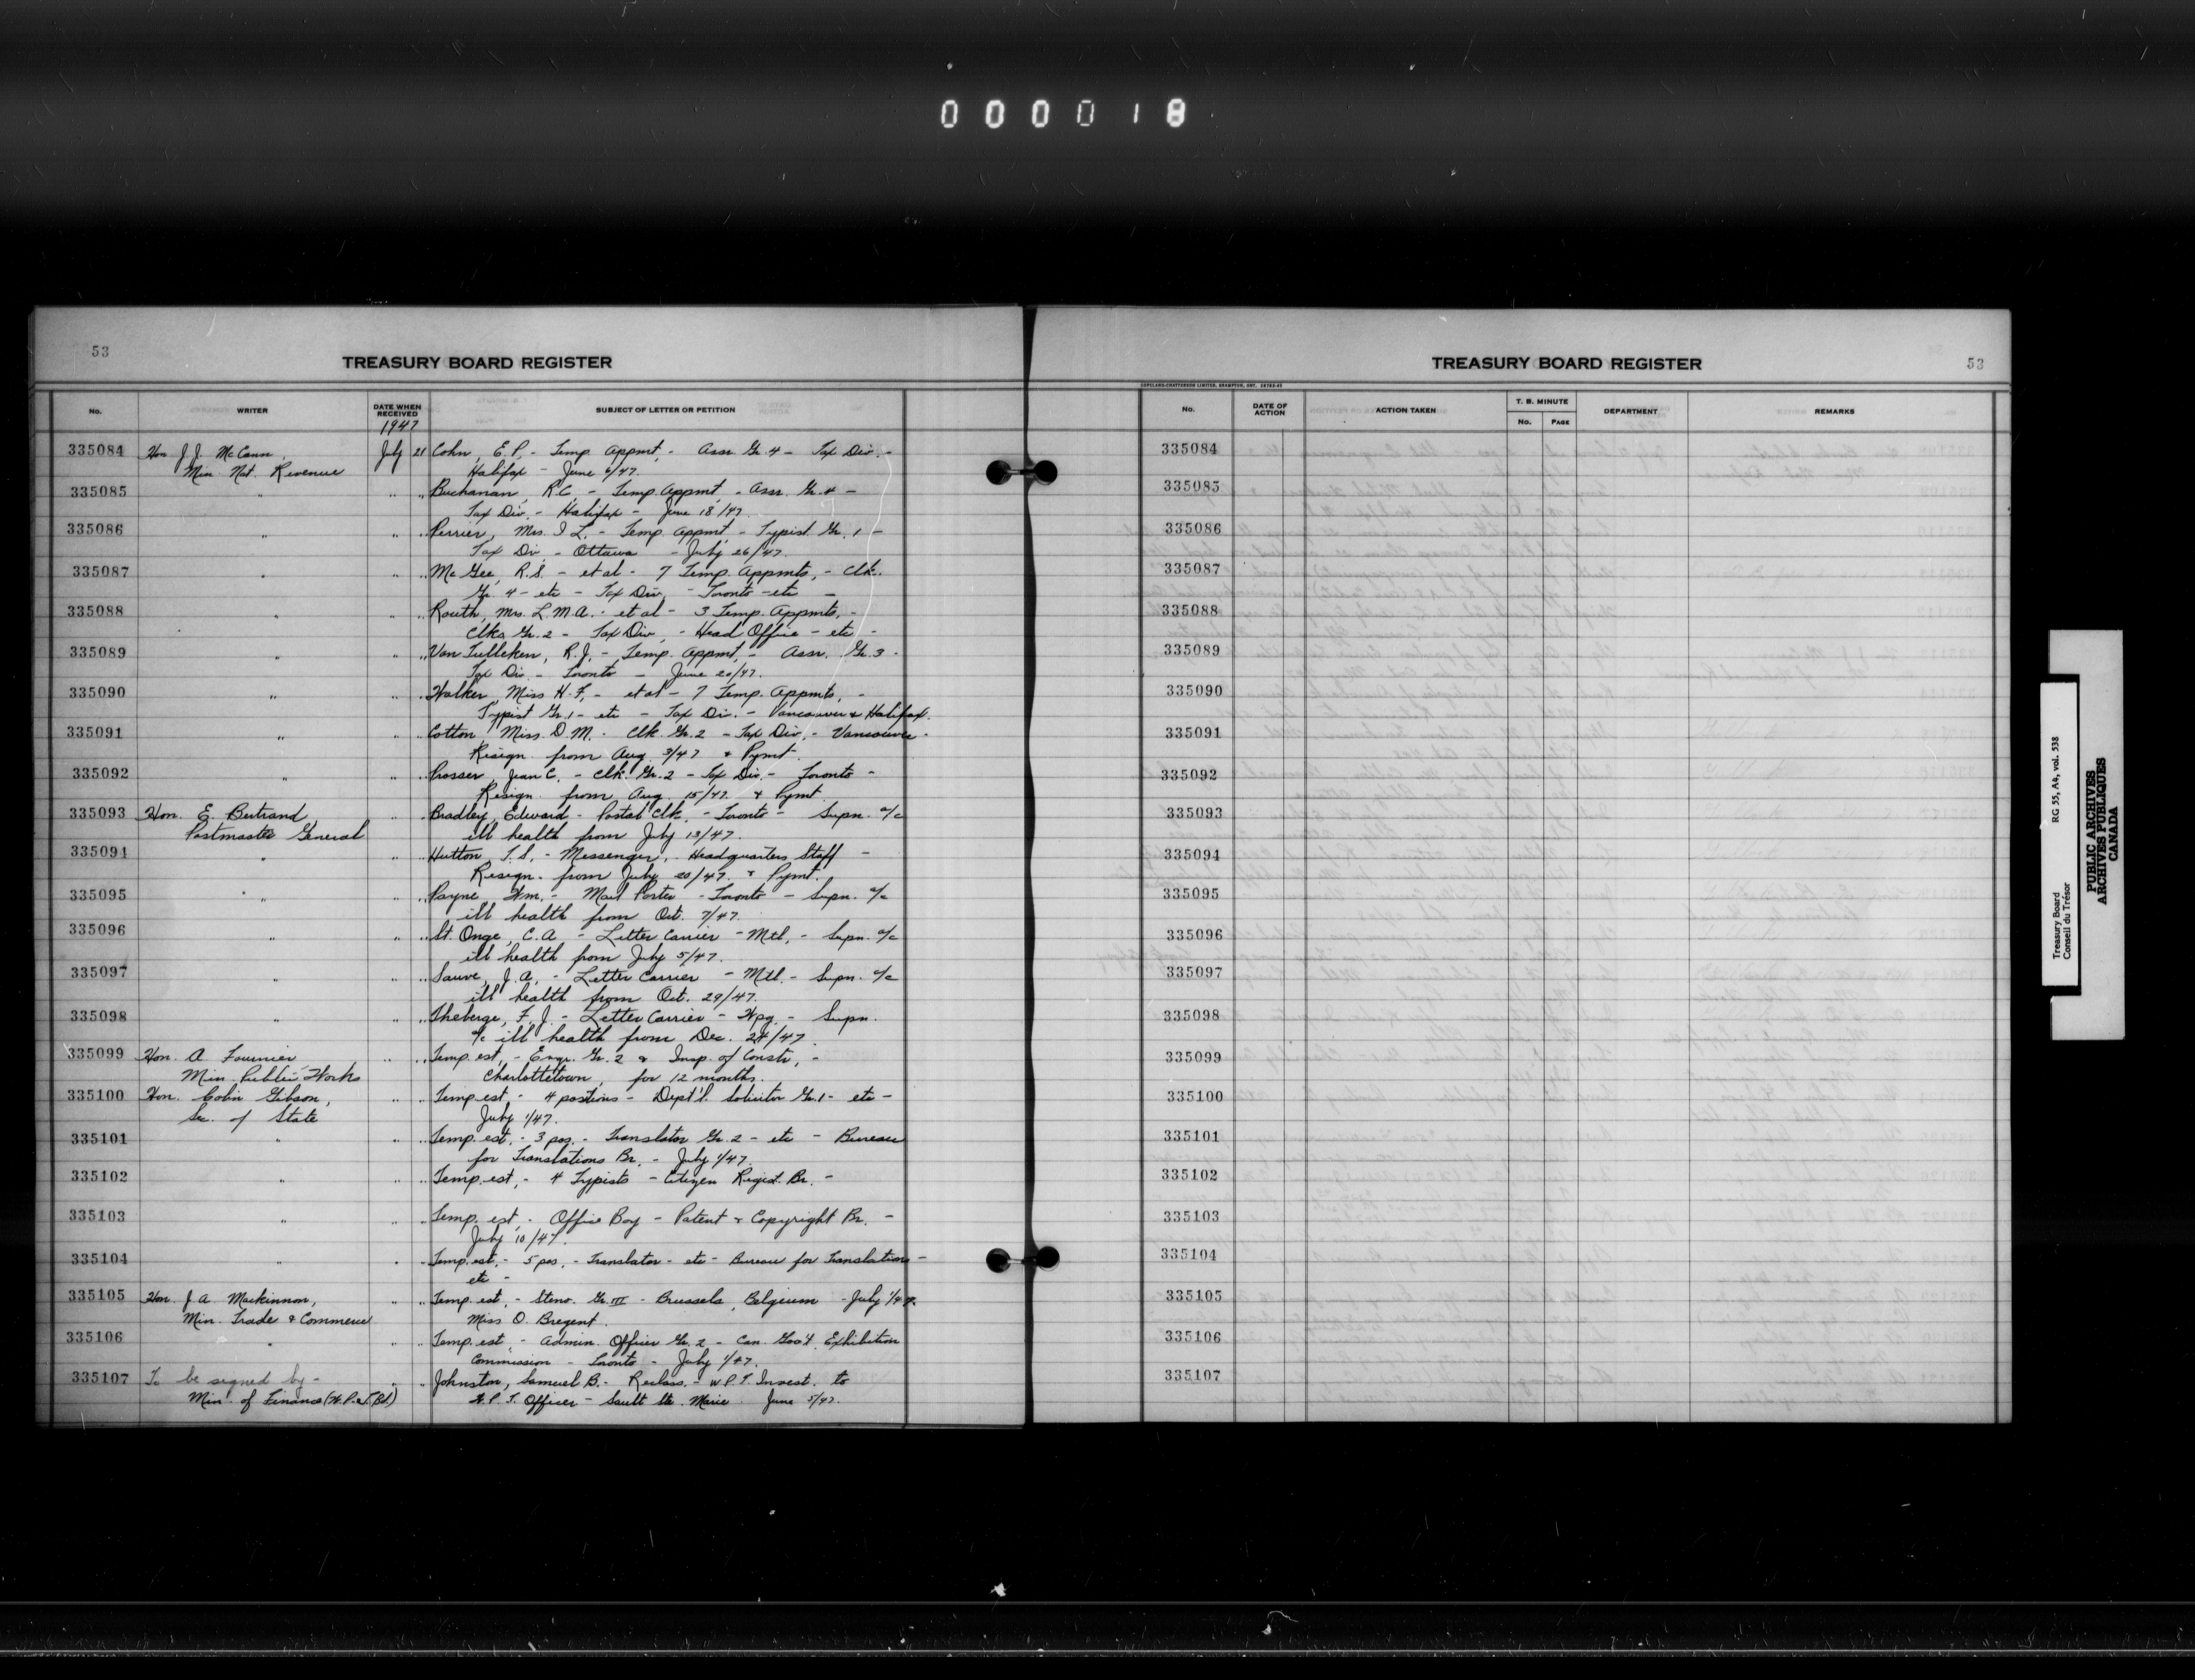 000018
53
TREASURY BOARD REGISTER
No. WRITER DATE WHEN RECEIVED SUBJECT OF LETTER OR PETITION
1947
335084 Hon J. J. McCann, July 21 Cohn, E. P. - Temp. Appmt. - Assr. Gr. 4 - Tax Div. -
Min. Nat. Revenue Halifax - June 6/47.
335085 " " " Buchanan, R.C. - Temp. Appmt. - Assr. Gr. 4 -
Tax Div. - Halifax - June 18/47.
335086 " " " Perrier, Mrs. I L. - Temp. Appmt. - Typist Gr. 1 -
Tax Div - Ottawa - July 26/47.
335087 " " " McGee, R.S. - et al - 7 Temp. Appmts. - Clk.
Gr. 4 - etc - Tax Div. - Toronto - etc -
335088 " " " Routh, Mrs. L.M.A. - et al - 3 Temp. Appmts. -
Clks Gr. 2 - Tax Div. - Head Office - etc -
335089 " " " Van Tulleken, R.J. - Temp. Appmt. - Assr. Gr. 3 -
Tax Div. - Toronto - June 20/47.
335090 " " " Walker, Miss H.F. - et al - 7 Temp. Appmts. -
Typist Gr. 1 - etc - Tax Div. - Vancouver & Halifax.
335091 " " " Cotton, Miss D.M. - Clk. Gr. 2 - Tax Div. - Vancouver -
Resign. from Aug. 3/47 & Pymt.
335092 " " " Prosser, Jean C. - Clk. Gr. 2 - Tax Div. - Toronto -
Resign. from Aug. 15/47. & Pymt.
335093 Hon. E. Bertrand, " " Bradley, Edward - Postal Clk. - Toronto - Supn. a/c
Postmaster General ill health from July 13/47.
335094 " " " Hutton, T.S. - Messenger, - Headquarters Staff -
Resign. from July 20/47. & Pymt.
335095 " " " Payne, Wm. - Mail Porter - Toronto - Supn. a/c
ill health from Oct. 7/47.
335096 " " " St. Onge, C.A. - Letter Carrier - Mtl. - Supn. a/c
ill health from July 5/47.
335097 " " " Sauve, J.A. - Letter Carrier - Mtl. - Supn. a/c
ill health from Oct. 29/47.
335098 " " " Theberge, F.J. - Letter Carrier - Wpg. - Supn.
a/c ill health from Dec. 24/47.
335099 Hon. A Fournier " " Temp. est. - Engr. Gr. 2 & Insp. of Constr. -
Min. Public Works Charlottetown, for 12 months.
335100 Hon. Colin Gibson, " " Temp. est - 4 positions - Dept'l. Solicitor Gr. 1 - etc -
Sec. of State July 1/47.
335101 " " " Temp. est. - 3 pos. - Translator Gr. 2 - etc - Bureau
for Translations Br. - July 1/47.
335102 " " " Temp. est. - 4 Typists - Citizen Regist. Br. -
335103 " " " Temp. est. - Office Boy - Patent & Copyright Br. -
July 10/47.
335104 " " " Temp. est. - 5 pos. - Translator - etc - Bureau for Translations -
etc -
335105 Hon. J. A. Mackinnon, " " Temp. est. - Steno. Gr. III - Brussels, Belgium - July 1/47.
Min. Trade & Commerce Miss O. Bregent.
335106 " " " Temp. est. - Admin. Officer Gr. 2 - Can. Gov't. Exhibition
Commission - Toronto - July 1/47.
335107 To be signed by - " " Johnston, Samuel B. - Reclass. - W.P.T. Invest. to
Min. of Finance (W.P. & T. Bd.) W.P.T. Officer - Sault Ste. Marie. June 5/47.
TREASURY BOARD REGISTER
53
COPELAND-CHATTERSON LIMITED, BRAMPTON, ONT.
No. DATE OF ACTION ACTION TAKEN T. B. MINUTE DEPARTMENT REMARKS
No. PAGE
335084
335085
335086
335087
335088
335089
335090
335091
335092
335093
335094
335095
335096
335097
335098
335099
335100
335101
335102
335103
335104
335105
335106
335107
Treasury Board RG 55, A4, vol. 538
Conseil du Trésor
PUBLIC ARCHIVES
ARCHIVES PUBLIQUES
CANADA